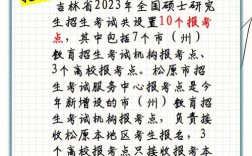 吉林省2023年全国硕士研究
生招生考试共设置10个报考
点，其中包括7个市（州）
教育招生考试机构报考点、
3个高校报考点。松原市招
生考试服务中心报考点是今
年新增设的市（州）教育招
生考试机构报考点，负责接
收松原本地区考生报名，3
个高校报考点只接收报考本